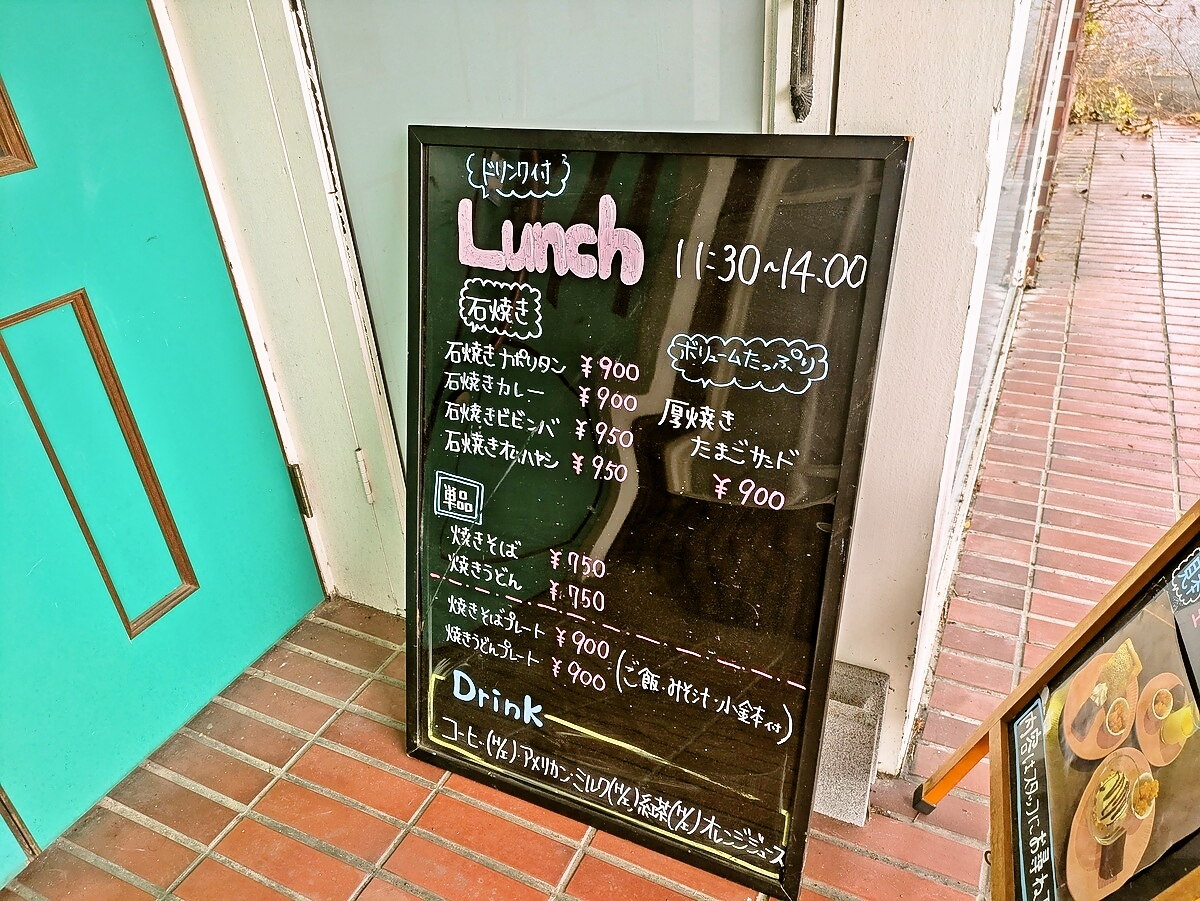 ドリンク付
Lunch 11:30~14:00
石焼き
石焼きナポリタン ¥900
石焼きカレー ¥900
石焼きビビンバ ¥950
石焼きオムハヤシ ¥950
ボリュームたっぷり
厚焼き
たまごサンド
¥900
単品
焼きそば ¥750
焼きうどん ¥750
焼きそばプレート ¥900
焼きうどんプレート ¥900
(ご飯・みそ汁・小鉢付)
Drink
コーヒー(H/Z)・アメリカン・ミルク(H/Z)紅茶(H/Z)オレンジジュース